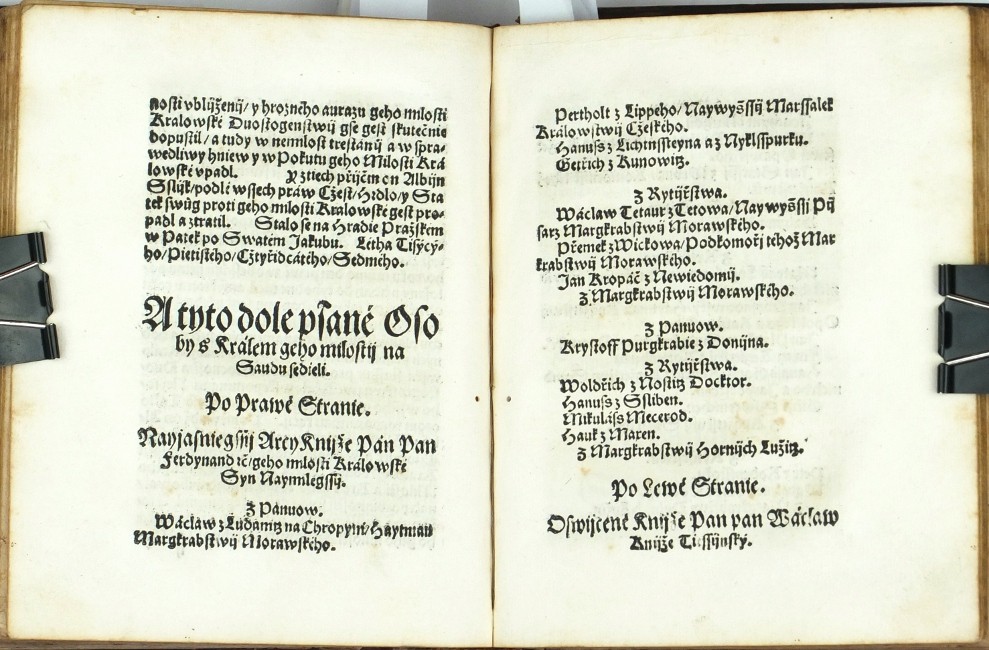 nosti vblijženij/ y hrozného aurazu geho milosti
Kralowské Duostogenstwij gse gest skutečnie
dopustil/ a tudy w nemilost trestánij a w spra-
wedliwy hniew y w Pokutu geho Milosti Krá
lowské vpadl. Y z tiech přijčin on Albijn
Sslijk/ podlé wssech praw Cžest/ Hrdlo/ y Sta
tek swůg proti geho milosti Kralowské gest pro-
padl a ztratil. Stalo se na Hradie Pražském
w Patek po Swatém Jakubu. Létha Tisýcý-
ho/ Pietistého/ Cžtyřidcátého/ Sedmého.
A tyto dole psané Oso
by s Králem geho milostij na
Saudu sedieli.
Po Prawé Stranie.
Nayjasniegssij Arcy Knijže Pán Pan
Ferdynand ꝛč/ geho milosti Králowské
Syn Naymilegssij.
Z Panuow.
Wáclaw z Ludanitz na Chropyni/ Haytman
Margkrabstwij Morawského.
Pertholt z Lippeho/ Naywyšssij Marssalek
Králowstwij Cžeského.
Hanuss z Lichtnssteyna a z Nyklsspurku.
Getřich z Kunowitz.
Z Rytijřstwa.
Wáclaw Tetaur z Tetowa/ Naywyšssij Pij
sarz Margkrabstwij Morawského.
Přemek z Wickowa/ Podkomořij téhož Mar
krabstwij Morawského.
Jan Kropáč z Newiedomij.
Z Margkrabstwij Morawského.
Z Panuow.
Krysstoff Purgkrabie z Donijna.
Z Rytijřstwa.
Woldřich z Nostitz Docktor.
Hanuss z Ssliben.
Mikuláss Mecerod.
Hauk z Maxen.
Z Margkrabstwij Hornijch Lužitz.
Po Lewé Stranie.
Oswijcené Knijže Pan pan Wáclaw
Knijže Tiessijnský.